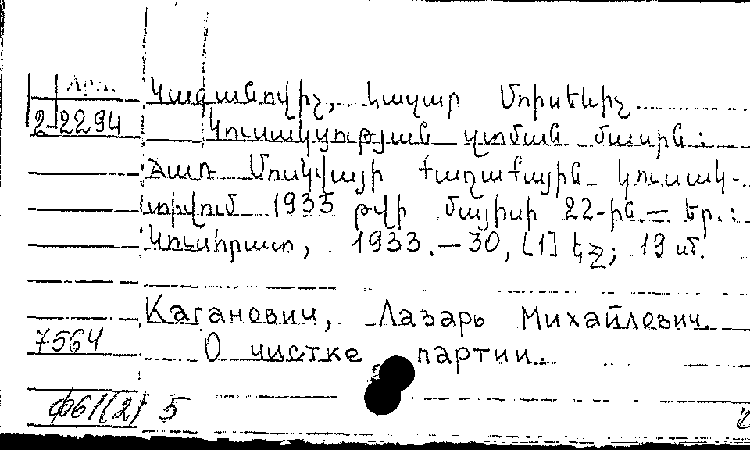 Արմ. Կագանովիչ, Լազար Մոիսեևիչ
2-2294 Կուսակցության զտման մասին:
Ճառ Մոսկվայի քաղաքային կուսակ-
տիվում 1933 թվի մայիսի 22-ին.— Եր.:
Կուսհրատ, 1933.—30, [1] էջ; 19 սմ.
Каганович, Лазарь Михайлович
7564 О чистке партии.
ф61(2) 5